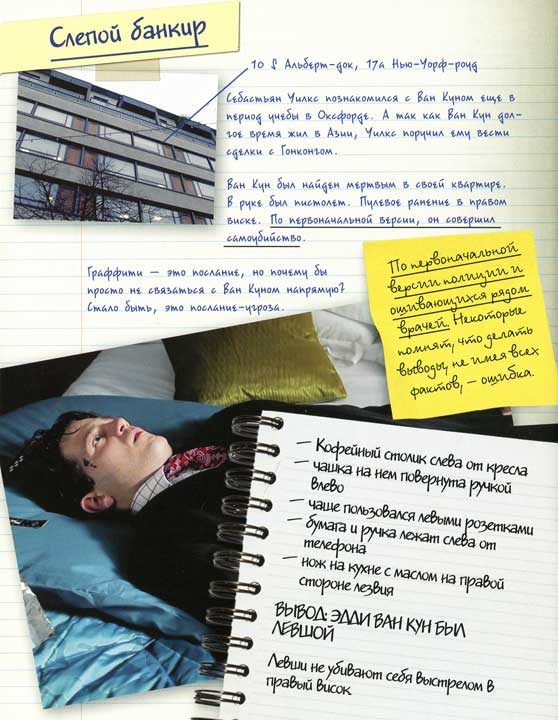 Слепой банкир
10 § Альберт-док, 17а Нью-Уорф-роуд
Себастьян Уилкс познакомился с Ван Куном еще в
период учебы в Оксфорде. А так как Ван Кун дол-
гое время жил в Азии, Уилкс поручил ему вести
сделки с Гонконгом.
Ван Кун был найден мертвым в своей квартире.
В руке был пистолет. Пулевое ранение в правом
виске. По первоначальной версии, он совершил
самоубийство.
Граффити — это послание, но почему бы
просто не связаться с Ван Куном напрямую?
Стало быть, это послание-угроза.
По первоначальной
версии полиции и
ошивающихся рядом
врачей. Некоторые
помнят, что делать
выводы, не имея всех
фактов, — ошибка.
— Кофейный столик слева от кресла
— чашка на нем повернута ручкой
влево
— чаще пользовался левыми розетками
— бумага и ручка лежат слева от
телефона
— нож на кухне с маслом на правой
стороне лезвия
ВЫВОД: ЭДДИ ВАН КУН БЫЛ
ЛЕВШОЙ
Левши не убивают себя выстрелом в
правый висок